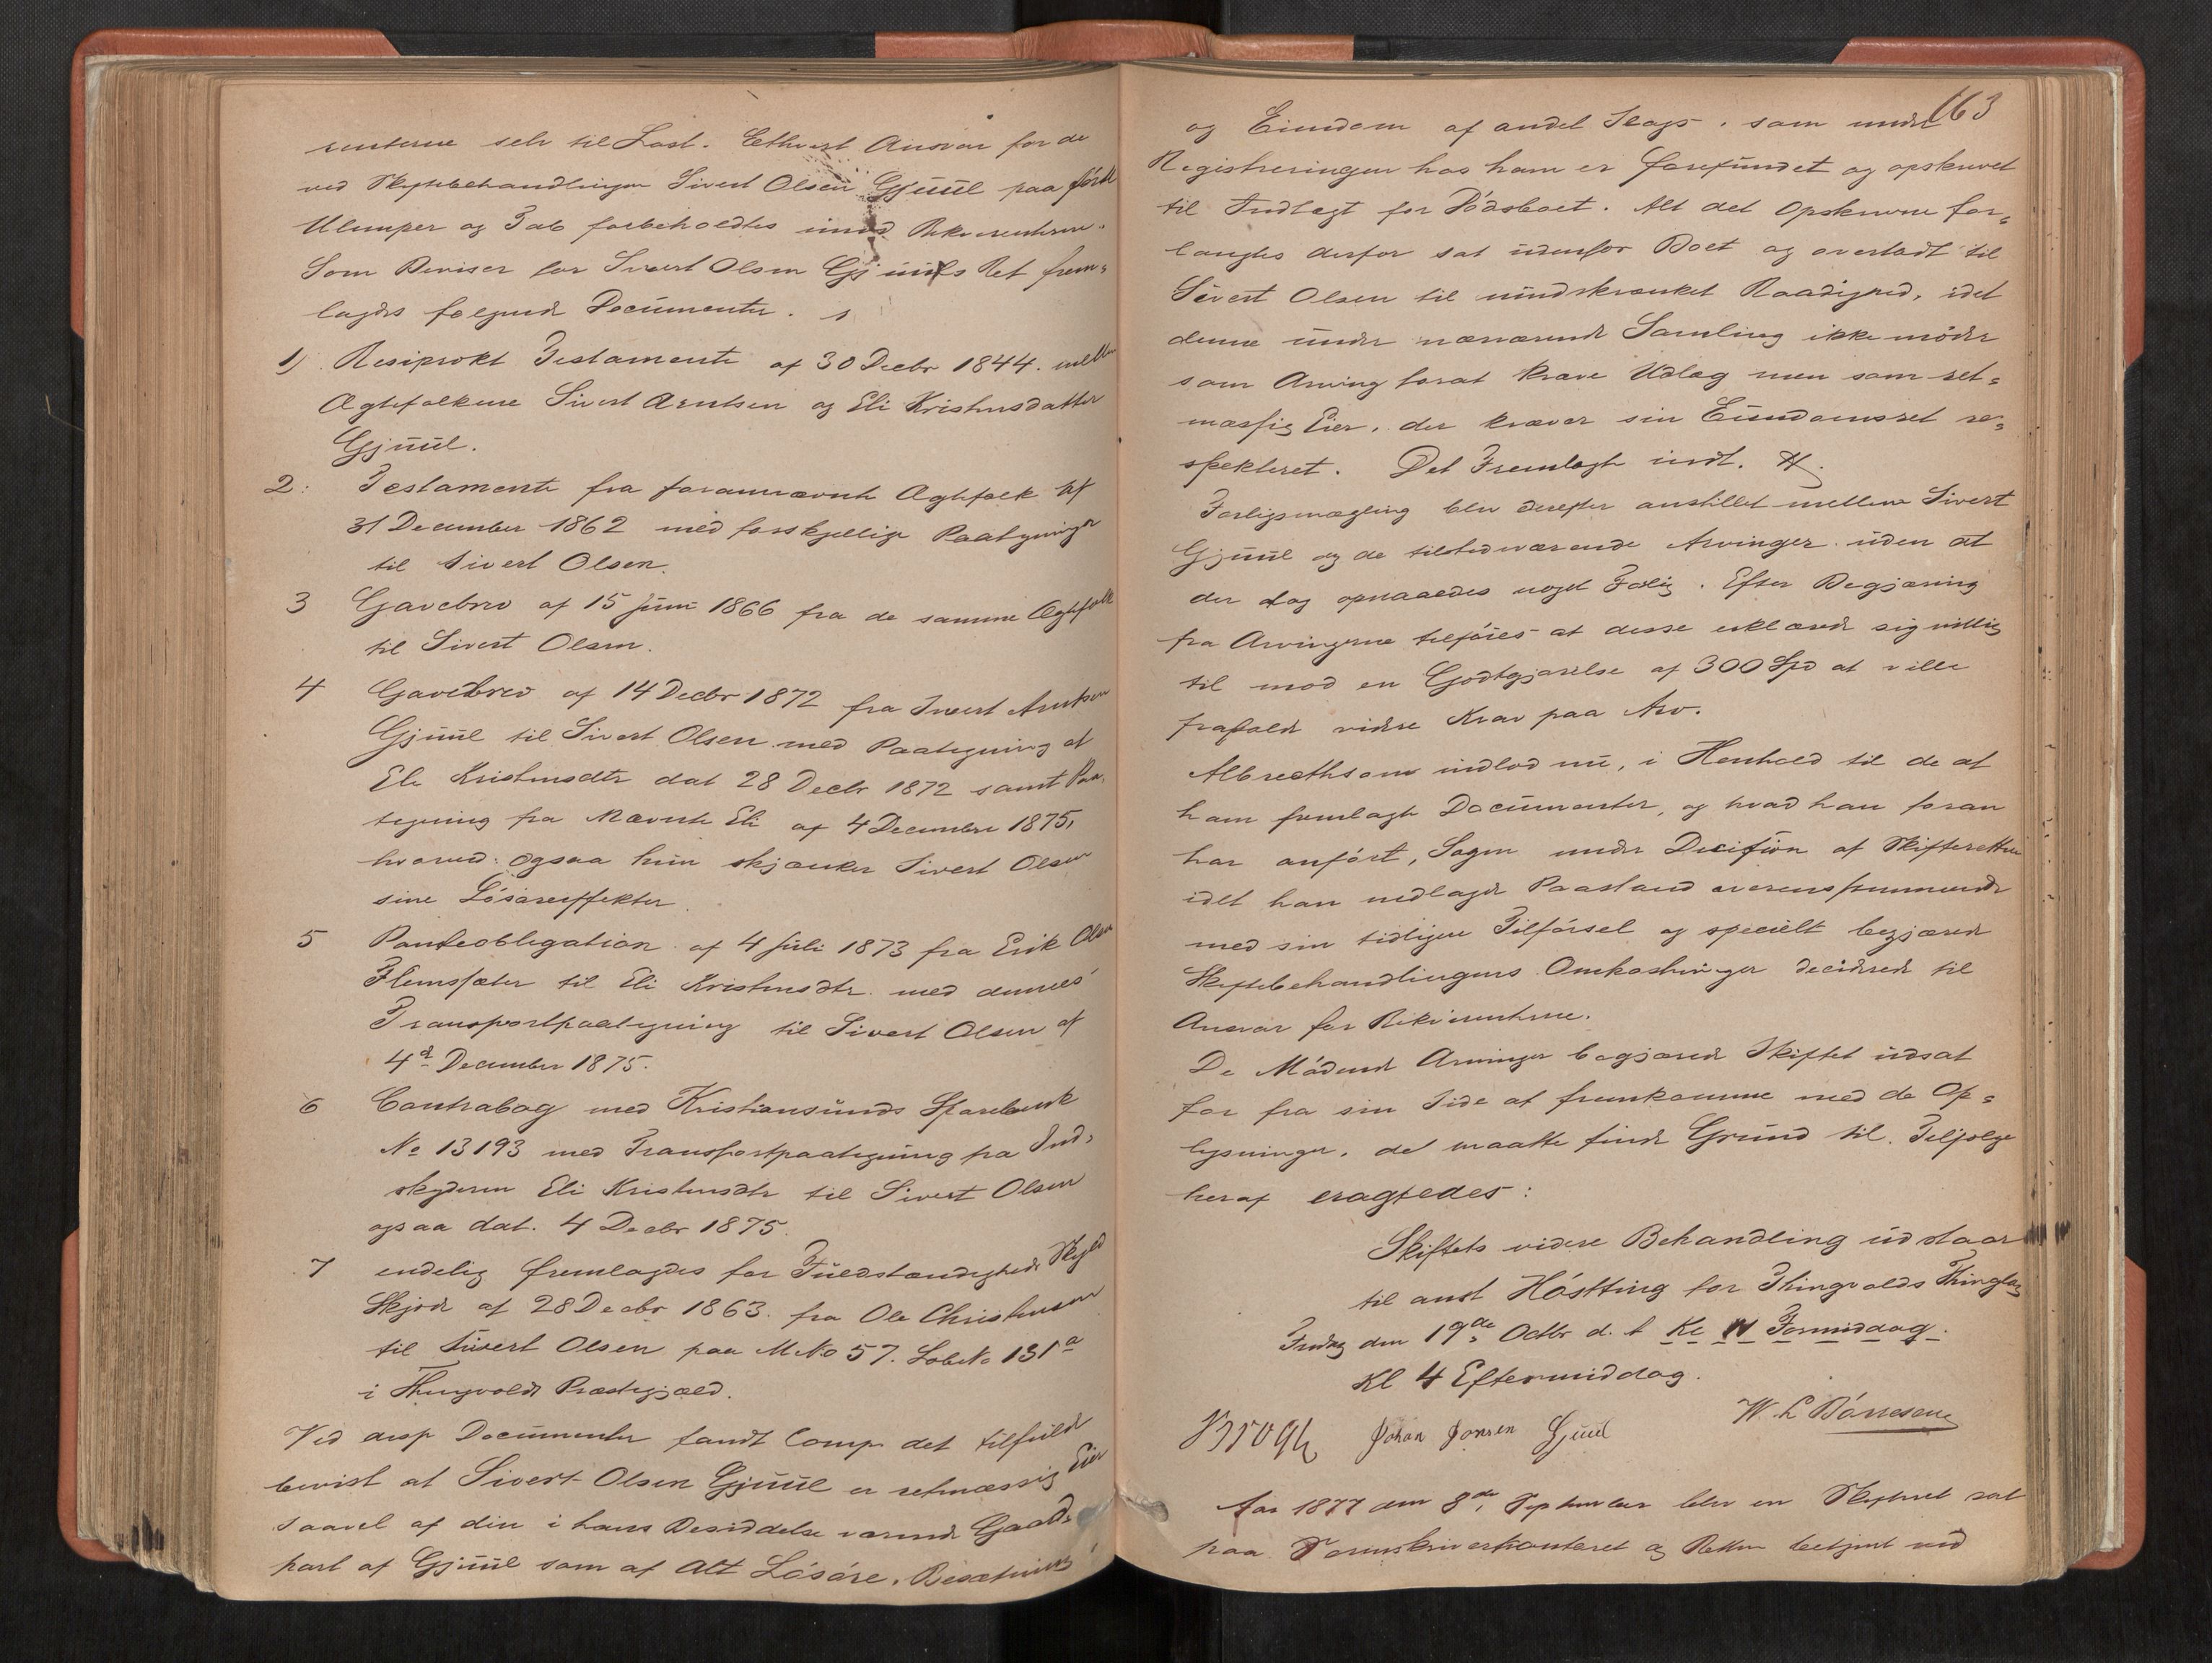 renterne selv til Last. Ethvert Ansvar for de
ved Skiftebehandlingen Sivert Olsen Gjuul paaførte
Ulemper og Tab forbeholdtes imod Rekvirenterne.
Som Beviser for Sivert Olsen Gjuuls Ret frem-
lagdes følgende Documenter.
1) Resiprokt Testamente af 30 Decbr 1844. mellem
Ægtefolkene Sivert Arntsen og Eli Kristensdatter
Gjuul.
2: Testamente fra forannævnte Ægtefolk af
31 December 1862 med forskjellige Paategninger
til Sivert Olsen.
3 Gavebrev af 15 Juni 1866 fra de samme Ægtefolk
til Sivert Olsen.
4 Gavebrev af 14 Decbr 1872 fra Sivert Arntsen
Gjuul til Sivert Olsen med Paategning af
Eli Kristensdtr dat 28 Decbr 1872 samt Paa-
tegning fra Nævnte Eli af 4 December 1875,
hvorved ogsaa hun skjænker Sivert Olsen
sine Løsøreeffekter.
5 Panteobligation af 4 Juli 1873 fra Erik Olsen
Flemsæter til Eli Kristensdtr med dennes
Transportpaategning til Sivert Olsen af
4de December 1875.
6 Contrabog med Kristiansunds Sparebank
No 13193 med Transportpaategning fra Ind-
skyderen Eli Kristensdtr til Sivert Olsen
ogsaa dat. 4 Decbr 1875.
7 endelig fremlagdes for Fuldstændigheds Skyld
Skjøde af 28 Decbr 1863. fra Ole Christensen
til Sivert Olsen paa M No 57. Løb No 131a
i Thingvolds Præstegjæld.
Ved disse Documenter fandt Comp. det tilfulde
bevist at Sivert Olsen Gjuul er retmæssig Eier
saavel af den i hans Besiddelse værende Gaard-
part af Gjuul som af Alt Løsøre, Besætning
163
og Eiendom af andet Slags, som under
Registreringen hos ham er forefundet og opskrevet
til Indtægt for Dødsboet. Alt det Opskrevne for-
langtes derfor sat udenfor Boet og overladt til
Sivert Olsen til uindskrænket Raadighed, idet
denne under nærværende Samling ikke møder
som Arving forat kræve Udlæg men som ret-
mæssig Eier, der kræver sin Eiendomsret re-
spekteret. Det Fremlagte indt.
Forligsmægling blev derefter anstillet mellem Sivert
Gjuul og de tilstedeværende Arvinger uden at
der dog opnaaedes noget Forlig. Efter Begjæring
fra Arvingerne tilføies at disse erklærede sig villig
til mod en Godtgjørelse af 300 Spd at ville
frafalde videre Krav paa Arv.
Albrecthson indlod nu, i Henhold til de af
ham fremlagte Documenter, og hvad han foran
har anført, Sagen under Decision af Skifteretten
idet han nedlagde Paastand overensstemmende
med sin tidligere Tilførsel og specielt begjærede
Skiftebehandlingens Omkostninger decideret til
Ansvar for Rekvirenterne.
De Mødende Arvinger begjærede Skiftet udsat
for fra sin Side at fremkomme med de Op-
lysninger, de maatte finde Grund til. Tilfølge
heraf eragtedes:
Skiftets videre Behandling udstaar
til anst Høstting for Thingvolds Thinglag
Fredag den 19de Octbr d. A. Kl 11 Formiddag.
Kl 4 Eftermiddag.
W. L Børresen
Brogh Johan Jonsen Gjuul
Aar 1877 den 8de September blev en Skifteret sat
paa Sorenskriverkontoret og Retten betjent ved